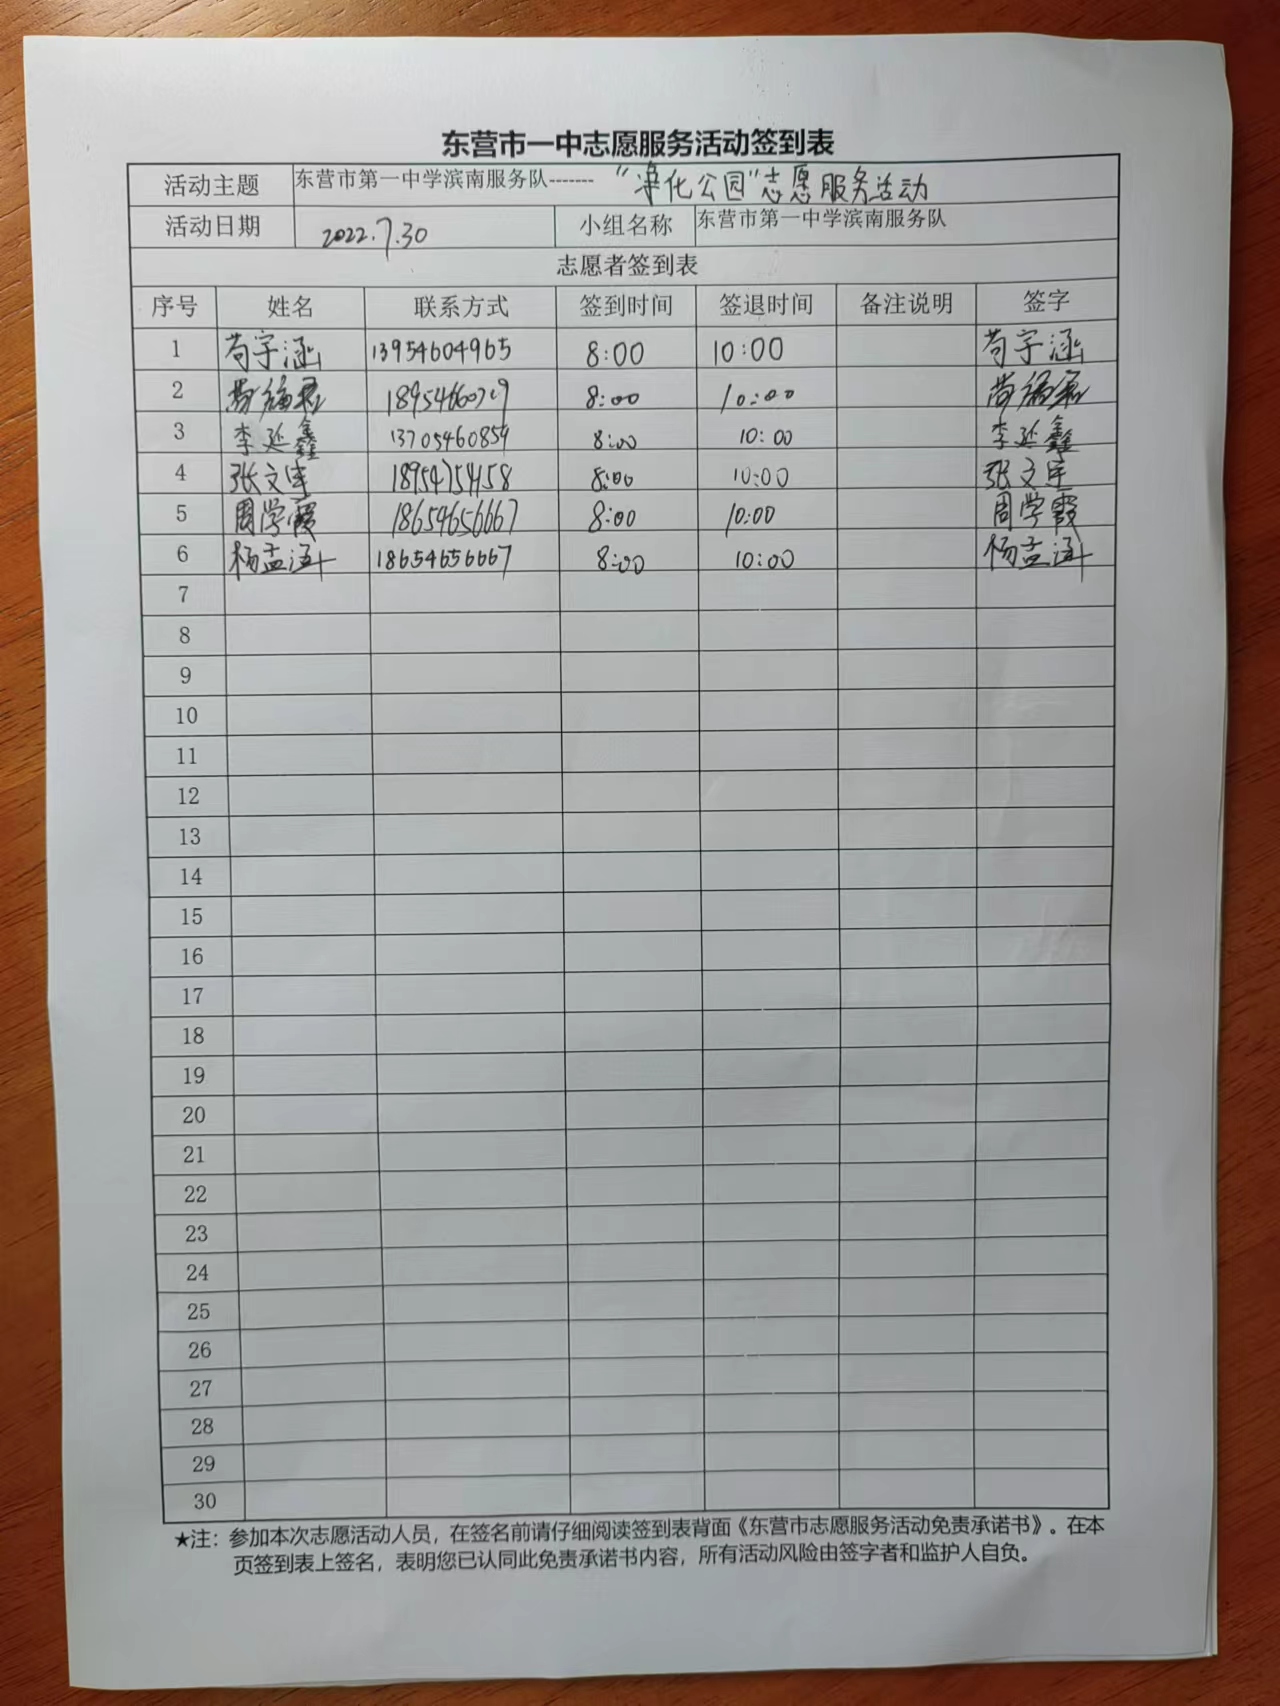 东营市一中志愿服务活动签到表
活动主题 东营市第一中学滨南服务队------- “净化公园”志愿服务活动
活动日期 2022.7.30 小组名称 东营市第一中学滨南服务队
志愿者签到表
序号 姓名 联系方式 签到时间 签退时间 备注说明 签字
1 苟宇涵 13954604965 8:00 10:00 苟宇涵
2 8:00 10:00
3 李延鑫 13705460859 8:00 10:00 李延鑫
4 张文 18954754158 8:00 10:00 张文
5 周学霞 18654656667 8:00 10:00 周学霞
6 杨孟涵 18654656667 8:00 10:00 杨孟涵
7
8
9
10
11
12
13
14
15
16
17
18
19
20
21
22
23
24
25
26
27
28
29
30
★注：参加本次志愿活动人员，在签名前请仔细阅读签到表背面《东营市志愿服务活动免责承诺书》。在本
页签到表上签名，表明您已认同此免责承诺书内容，所有活动风险由签字者和监护人自负。